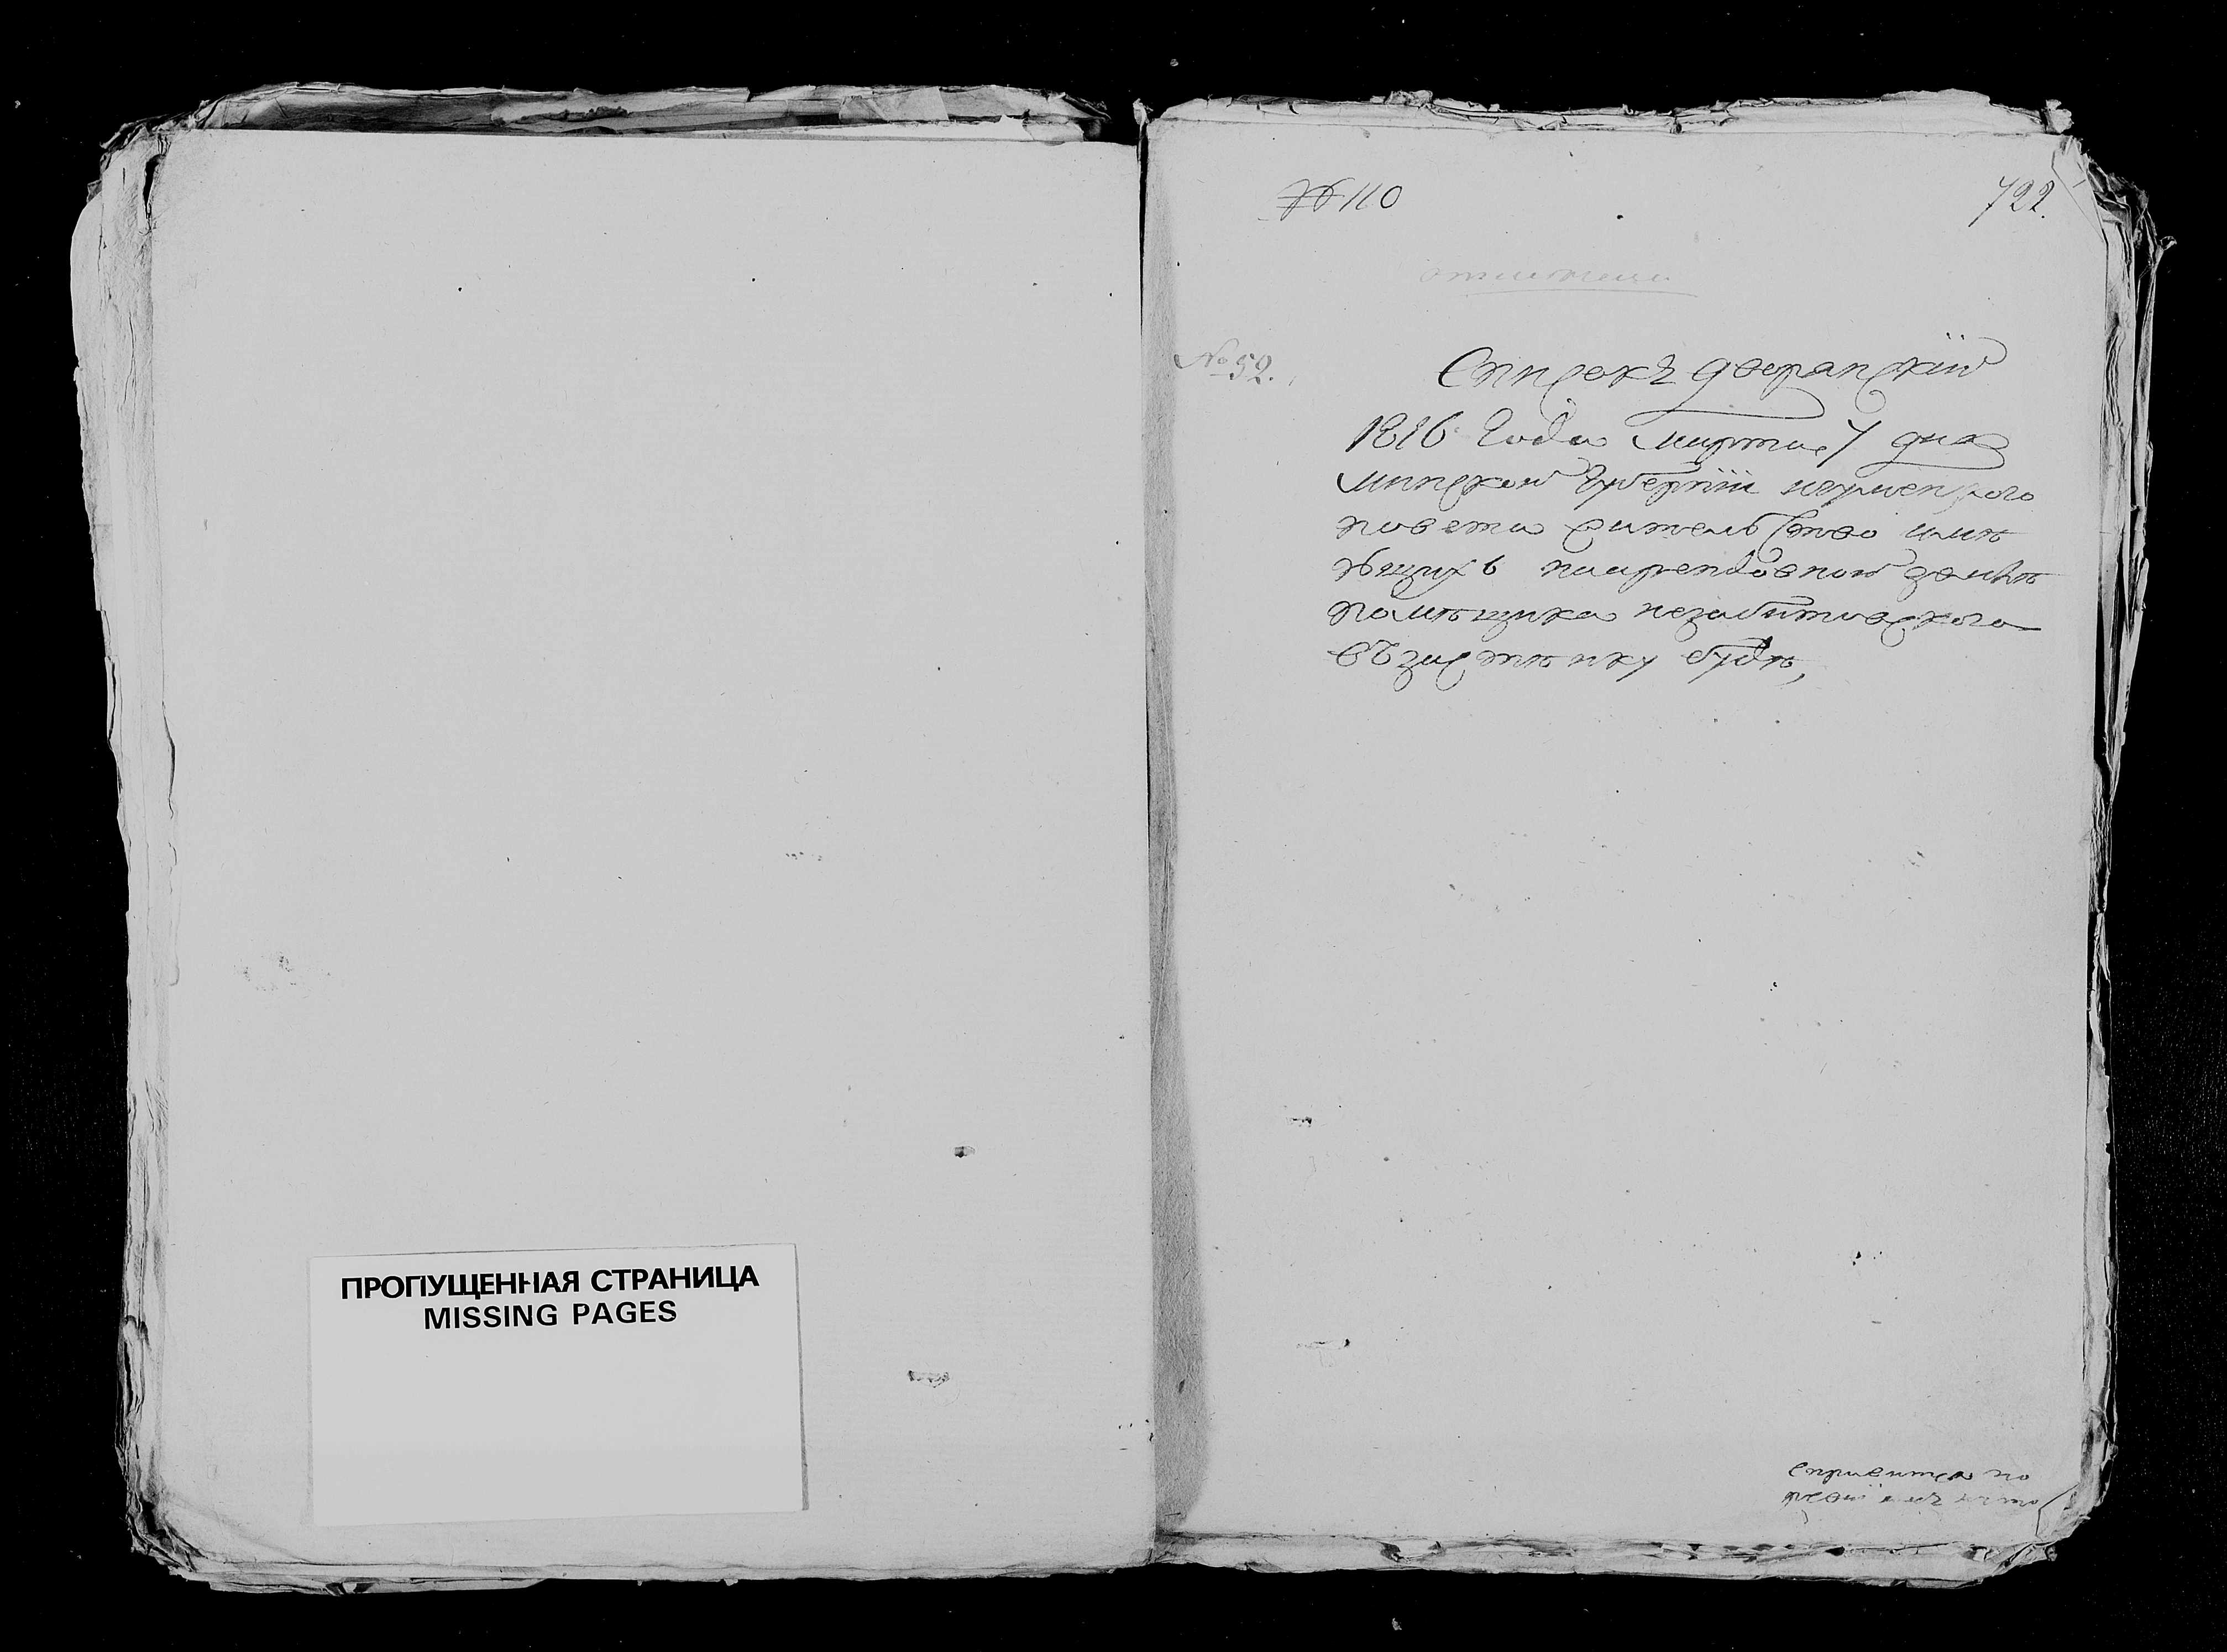 ПРОПУЩЕННАЯ СТРАНИЦА
MISSING PAGES
№ 110
722.
№ 52.
Списокъ дворанскїй
1816 года марта 7 дна
минской губернїи игуменского
повета жительство имѣ
ющихъ наарендовной землѣ
помѣщика незабитовского
въ застѣнку будѣ,